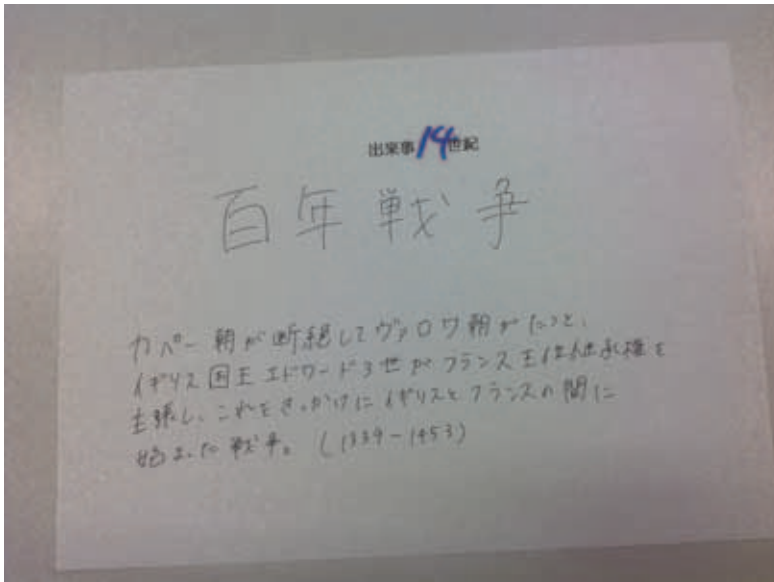 出来事14世紀
百年戦争
カペー朝が断絶してヴァロワ朝がたつと、
イギリス国王エドワード3世がフランス王位継承権を
主張し、これをきっかけにイギリスとフランスの間に
始まった戦争。(1339-1453)